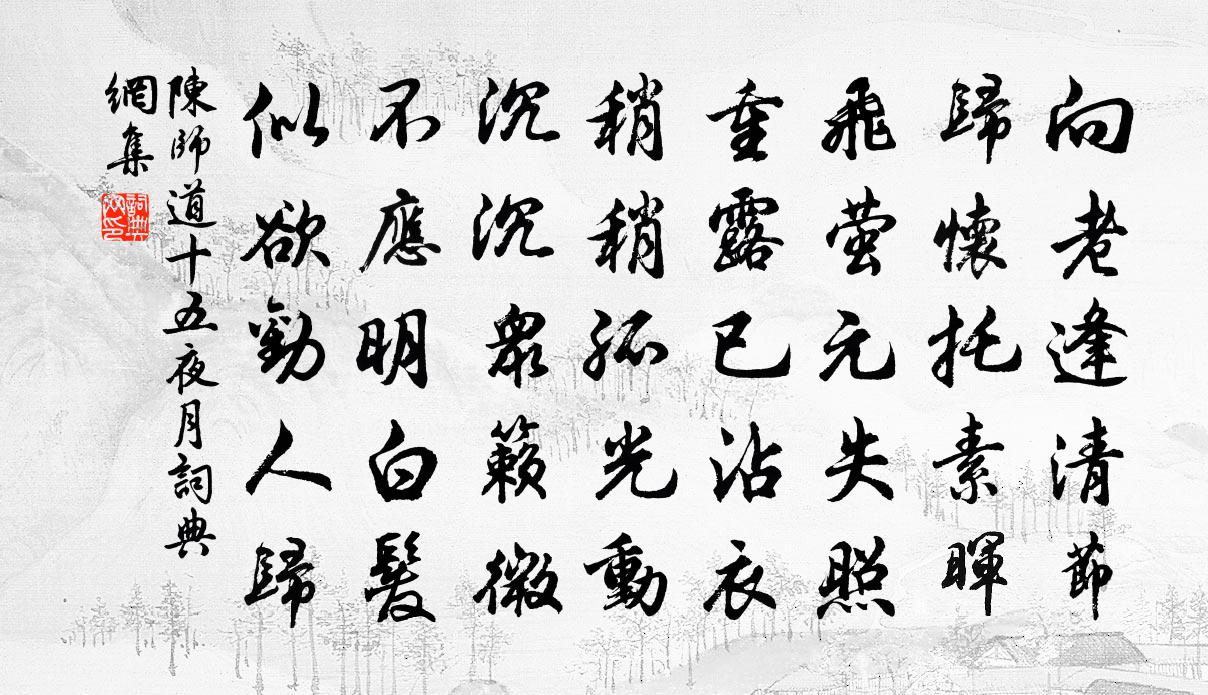 向老逢清節
歸懷托素暉
飛螢元失照
重露已沾衣
稍稍孤光動
沉沉衆籟微
不應明白髮
似欲勸人歸
陳師道十五夜月詞典
網集
詞典網印